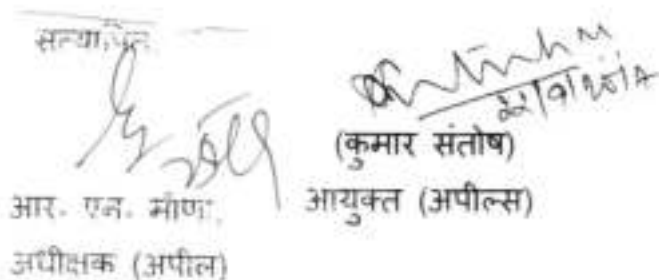 सत्यापित
(कुमार संतोष)
आयुक्त (अपील्स)
आर. एन. मीणा
अधीक्षक (अपील)